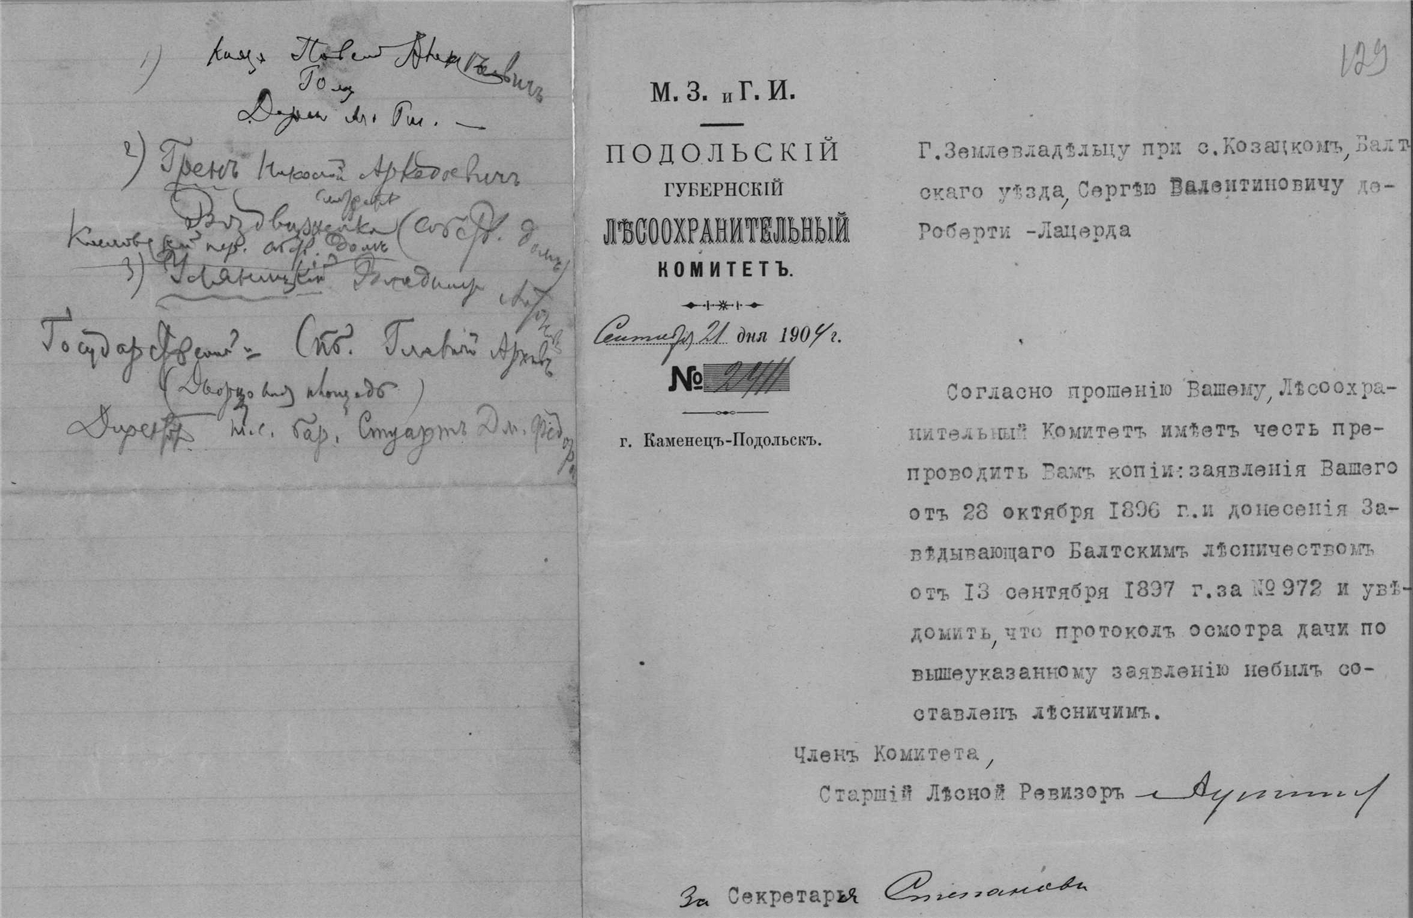 1) Князь Павел
2) Гренъ Николай Аркадьевичъ
Воздвиженка (собств. домъ)
пер. собр. домъ
3) Улянищкій Владимир
Государственный Спб. Главный Архивъ
(Дворцовая площадь)
Директ. т.с. бар. Стуартъ Дм. Ѳедор.
129
М. З. и Г. И.
ПОДОЛЬСКІЙ
ГУБЕРНСКІЙ
ЛѢСООХРАНИТЕЛЬНЫЙ
КОМИТЕТЪ.
Сентября 21 дня 1904 г.
№ 2411
г. Каменецъ-Подольскъ.
Г.Землевладѣльцу при с.Козацкомъ, Балт-
скаго уѣзда, Сергѣю Валентиновичу де-
Роберти -Лацерда
Согласно прошенію Вашему, Лѣсоохра-
нительный Комитетъ имѣетъ честь пре-
проводить Вамъ копіи: заявленія Вашего
отъ 28 октября 1896 г.и донесенія За-
вѣдывающаго Балтскимъ лѣсничествомъ
отъ 13 сентября 1897 г.за №972 и увѣ-
домить, что протоколъ осмотра дачи по
вышеуказанному заявленію небылъ со-
ставленъ лѣсничимъ.
Членъ Комитета,
Старшій Лѣсной Ревизоръ
За Секретаря Степановъ